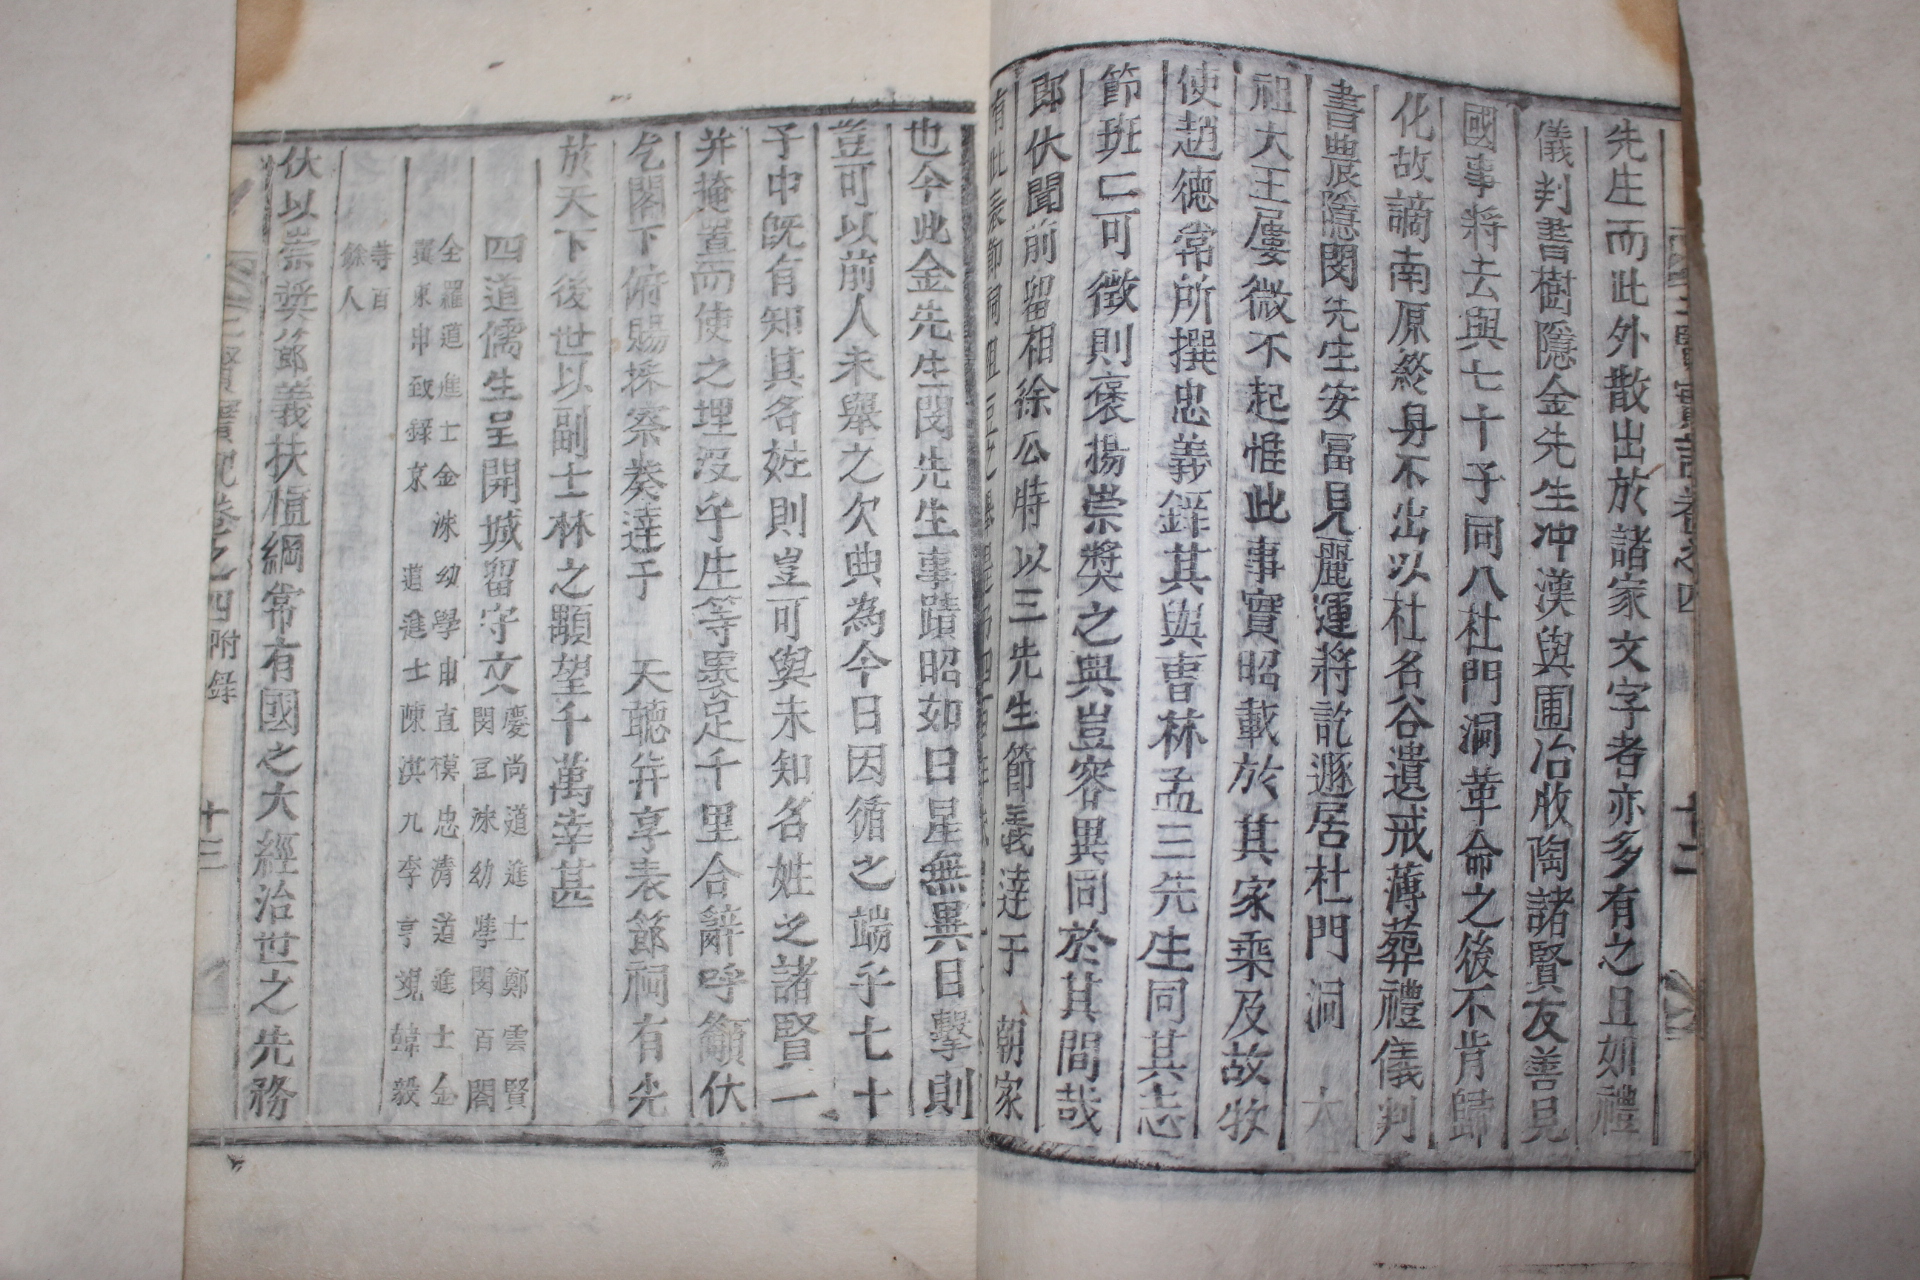 先生而此外散出於諸家文字者亦多有之且如禮
儀判書樹隱金先生冲漢與圃冶牧陶諸賢友善見
國事將去與七十子同入杜門洞革命之後不肯歸
化故謫南原終身不出以杜名谷遺戒薄葬禮儀判
書農隱閔先生安富見麗運將訖遯居杜門洞 太
祖大王屢徵不起惟此事實昭載於其家乘及故牧
使趙德常所撰忠義錄其與曺林孟三先生同其志
節班班可徵則褒揚崇獎之典豈容異同於其間哉
郎伏聞前留相徐公時以三先生節義達于 朝家
有此表節祠俎豆之擧
也今此金先生閔先生事蹟昭如日星無異日擊則
豈可以前人未擧之欠典為今日因循之端乎七十
子中旣有知其名姓則豈可與未知名姓之諸賢一
并掩置而使之埋沒乎生等裹足千里合辭呼籲伏
乞閤下俯賜採察癸達于 天聽并享表節祠有光
於天下後世以副士林之顒望千萬幸甚
四道儒生呈開城留守文 慶尙道進士鄭雲賢
閔亙洙幼學閔百閣
全羅道進士金洙幼學申直模忠淸道進士金
冀東申致錄京 道進士陳淇九李亨逸韓毅
等百
餘人
伏以崇奬節義扶植綱常有國之大經治世之先務
卷之四 附錄
十三
卷之四
十二